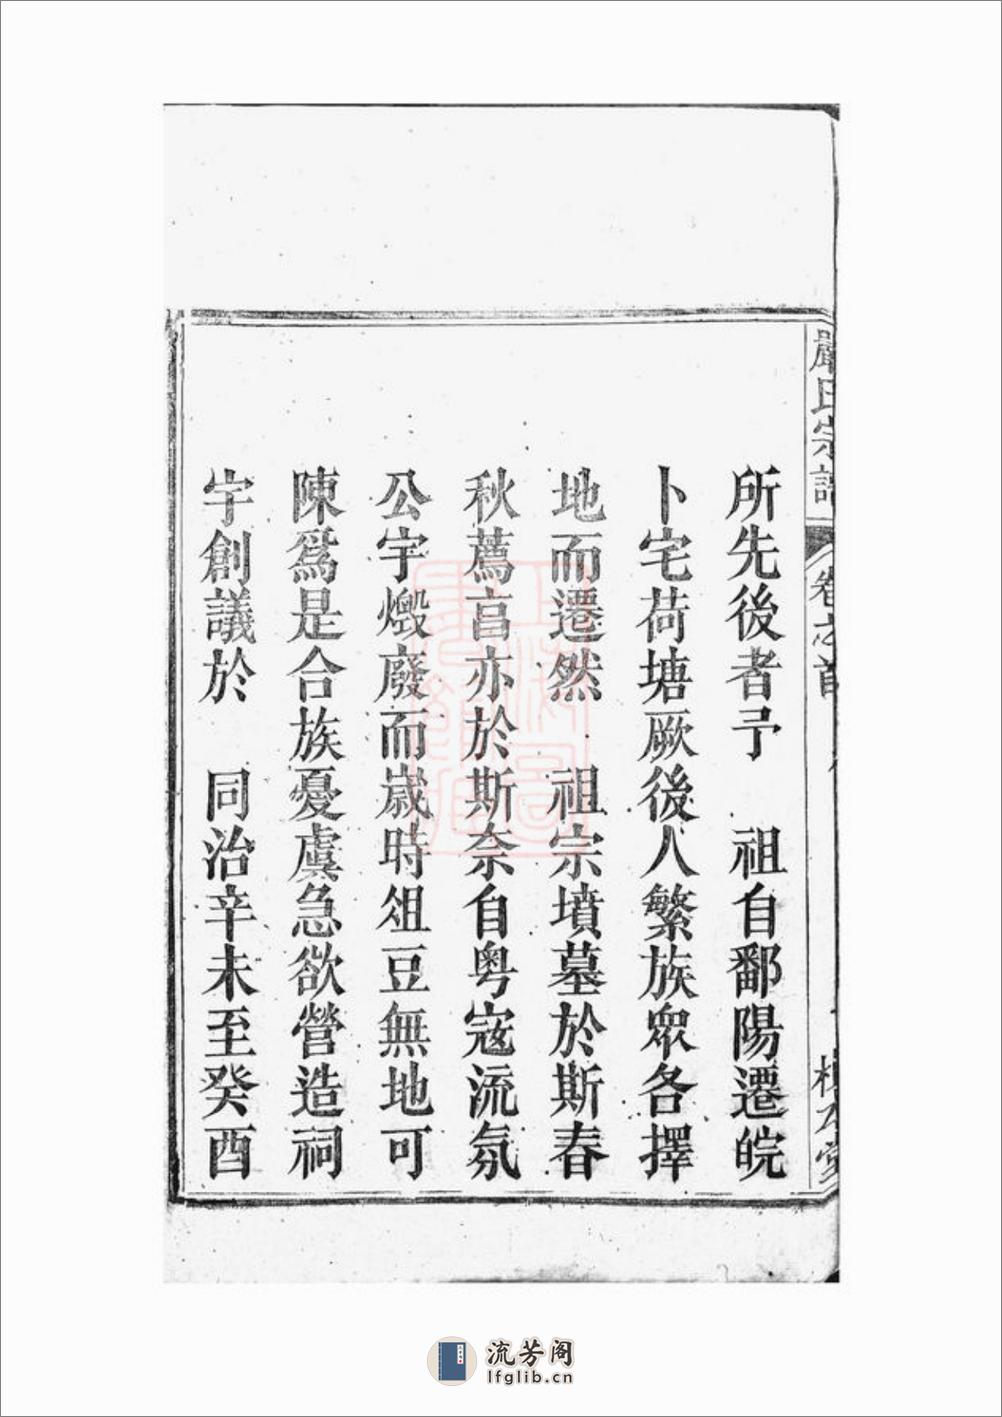 嚴氏宗譜
卷之首
所先後者予　祖自鄱陽遷皖
卜宅荷塘厥後人繁族眾各擇
地而遷然　祖宗墳墓於斯春
秋薦亯亦於斯奈自粤寇流氛
公宇燬廢而歲時俎豆無地可
陳爲是合族憂虞急欲營造祠
宇創議於　同治辛未至癸酉
上海圖
書館藏
流芳阁
lfglib.cn